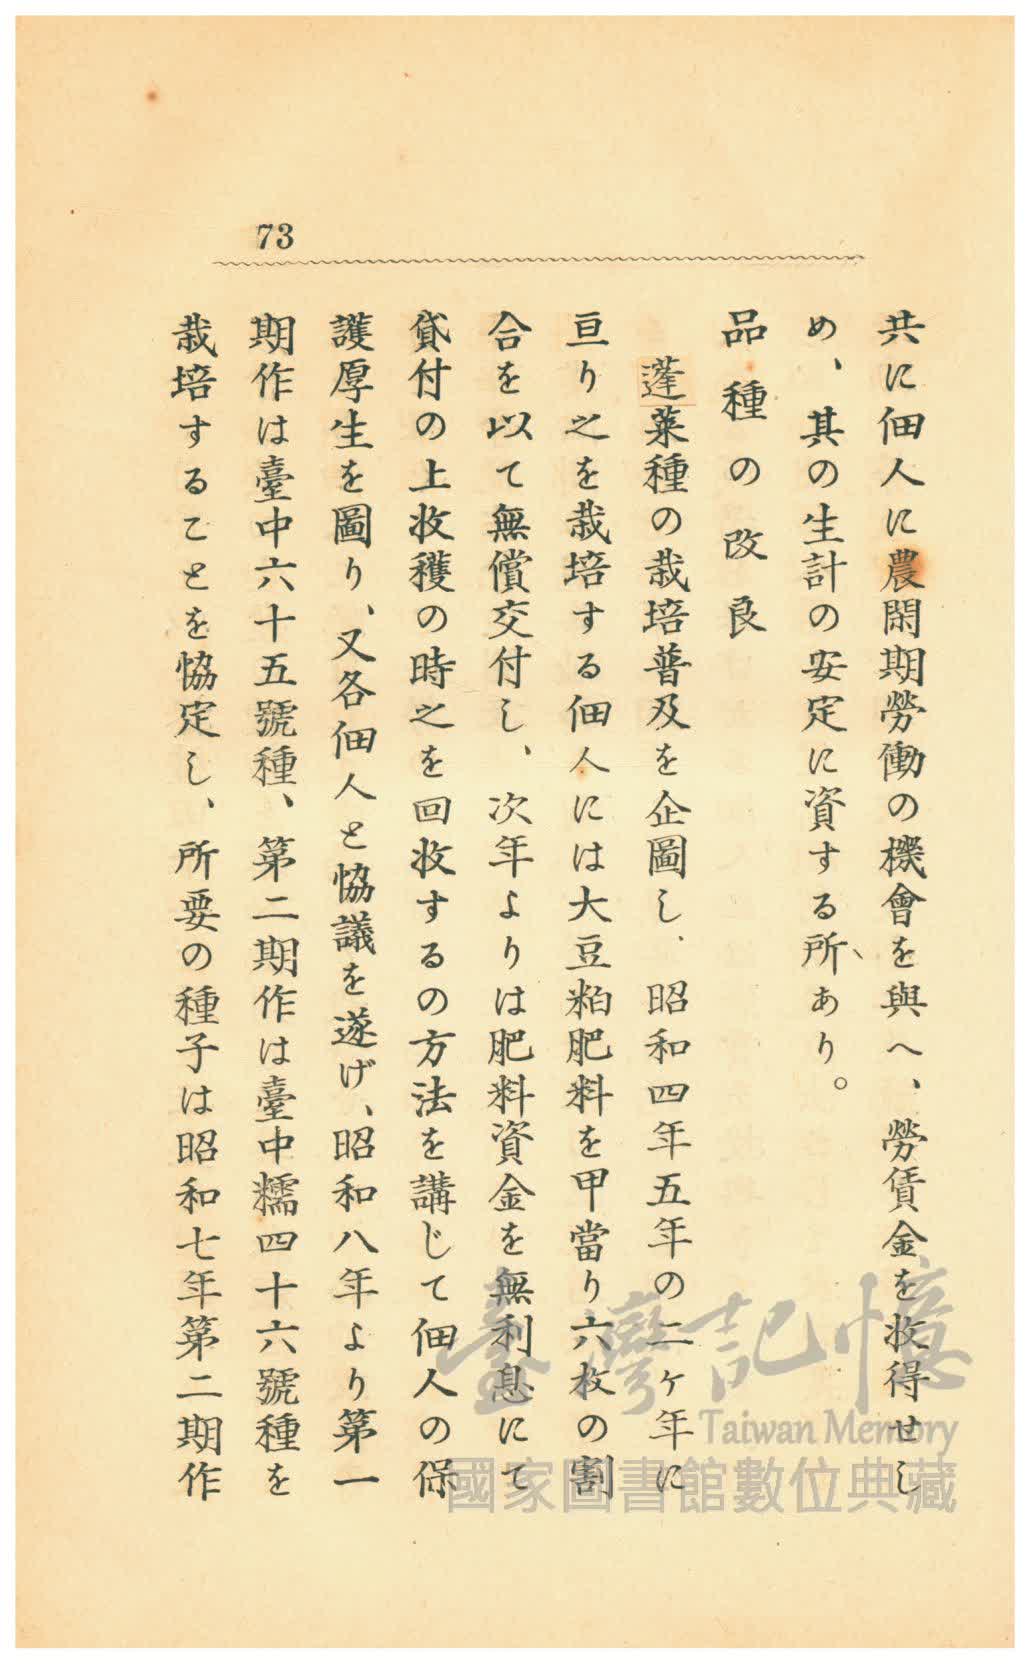 73
共に佃人に農閑期勞働の機會を與へ、勞賃金を收得せし
め、其の生計の安定に資する所あり。
品種の改良
蓬萊種の栽培普及を企圖し、昭和四年五年の二ヶ年に
亘り之を栽培する佃人には大豆粕肥料を甲當り六枚の割
合を以て無償交付し、次年よりは肥料資金を無利息にて
貸付の上收穫の時之を回收するの方法を講じて佃人の保
護厚生を圖り、又各佃人と恊議を遂げ、昭和八年より第一
期作は臺中六十五號種、第二期作は臺中糯四十六號種を
栽培することを恊定し、所要の種子は昭和七年第二期作
臺灣記憶
Taiwan Memory
國家圖書館數位典藏